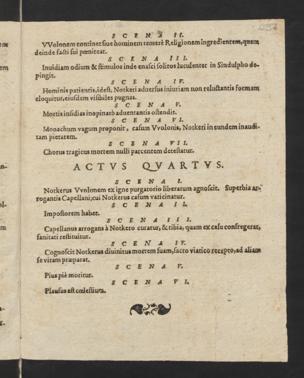 SCENA II.
VVolonem continet siue hominem temerè Religionem ingredientem, quem
deinde facti sui pœniteat.
SCENA III.
Inuidiam odium & stimulos inde enasci solitos luculenter in Sindulpho de-
pingit.
SCENA IV.
Hominis patientis, idest, Notkeri aduersus iniuriam non reluctantis formam
eloquitur, eiusdem visibiles pugnas.
SCENA V.
Mortis insidias inopinatò aduentantis ostendit.
SCENA VI.
Monachum vagum proponit, casum Vvolonis, Notkeri in eundem inaudi-
tam pietatem.
SCENA VII.
Chorus tragicus mortem nulli parcentem detestatur.
ACTVS QVARTVS.
SCENA I.
Notkerus Vvolonem ex igne purgatorio liberatum agnoscit. Superbia ar-
rogantis Capellani, cui Notkerus casum vaticinatur.
SCENA II.
Impostorem habet.
SCENA III.
Capellanus arrogans à Notkero curatur, & tibia, quam ex casu confregerat,
sanitati restituitur.
SCENA IV.
Cognoscit Notkerus diuinitus mortem suam, sacro viatico recepto, ad aliam
se vitam præparat.
SCENA V.
Pius piè moritur.
SCENA VI.
Plausus est cœlestium.